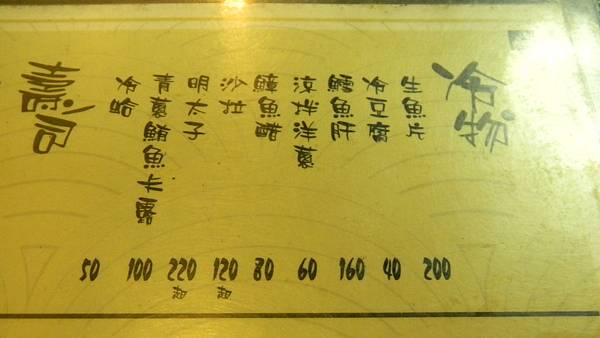 冷物
生魚片 200
冷豆腐 40
鱈魚肝 160
涼拌洋蔥 60
鱆魚醋 80
沙拉 120起
明太子 220起
青蔥鮪魚卡露 100
冷蛤 50